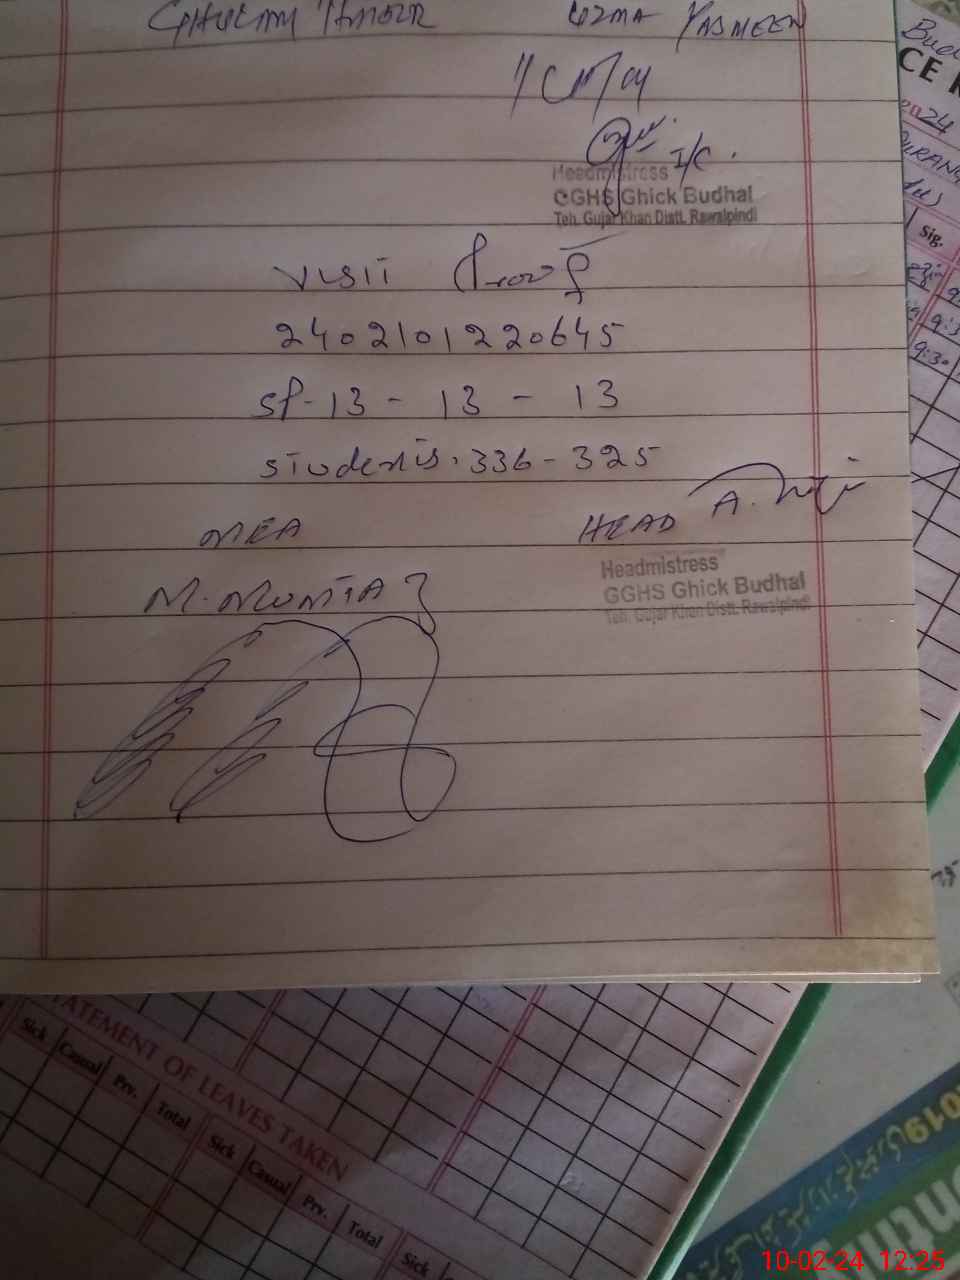 UZMA YASMEEN
I/C.
Headmistress
GGHS Ghick Budhal
Teh. Gujar Khan Distt. Rawalpindi
VISIT Proof
2402101220645
SP-13 - 13 - 13
students. 336 - 325
MEA
HEAD A.
Headmistress
GGHS Ghick Budhal
Teh. Gujar Khan Distt. Rawalpindi
M. MUMTAZ
2024
Sig.
9:30
STATEMENT OF LEAVES TAKEN
Sick Casual Prv. Total Sick Casual Prv. Total Sick
2019
10-02-24 12:25